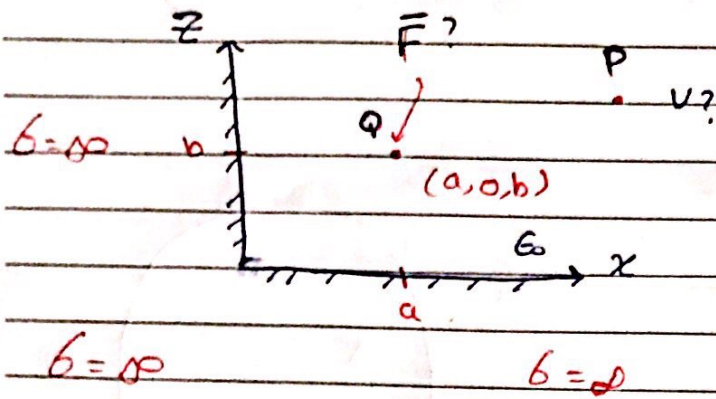 Z F̄ ?
P
Q V?
σ=∞ b
(a,0,b)
ε₀ x
a
σ=∞ σ=∞